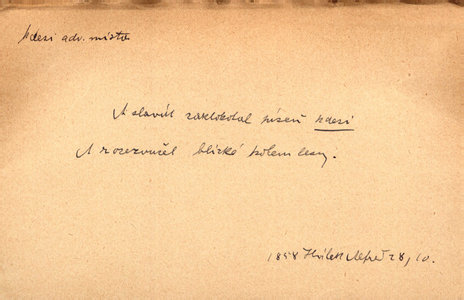 kdesi adv. místa
A slavík zaklokotal píseň kdesi
A rozezvučel blízké kolem lesy.
1858 Hálek Alfred 28, 10.